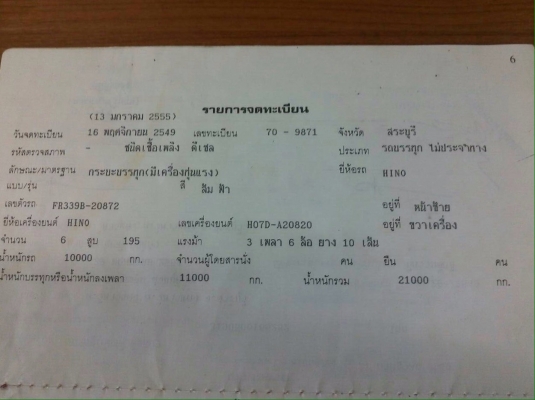 6
รายการจดทะเบียน
(13 มกราคม 2555)
วันจดทะเบียน 16 พฤศจิกายน 2549 เลขทะเบียน 70 - 9871 จังหวัด สระบุรี
รหัสตรวจสภาพ - ชนิดเชื้อเพลิง ดีเซล ประเภท รถบรรทุก ไม่ประจำทาง
ลักษณะ/มาตรฐาน กระบะบรรทุก(มีเครื่องทุ่นแรง) ยี่ห้อรถ HINO
แบบ/รุ่น สี ส้ม ฟ้า
เลขตัวรถ FR339B-20872 อยู่ที่ หน้าซ้าย
ยี่ห้อเครื่องยนต์ HINO เลขเครื่องยนต์ H07D-A20820 อยู่ที่ ขวาเครื่อง
จำนวน 6 สูบ 195 แรงม้า 3 เพลา 6 ล้อ ยาง 10 เส้น
น้ำหนักรถ 10000 กก. จำนวนผู้โดยสารนั่ง คน ยืน คน
น้ำหนักบรรทุกหรือน้ำหนักลงเพลา 11000 กก. น้ำหนักรวม 21000 กก.